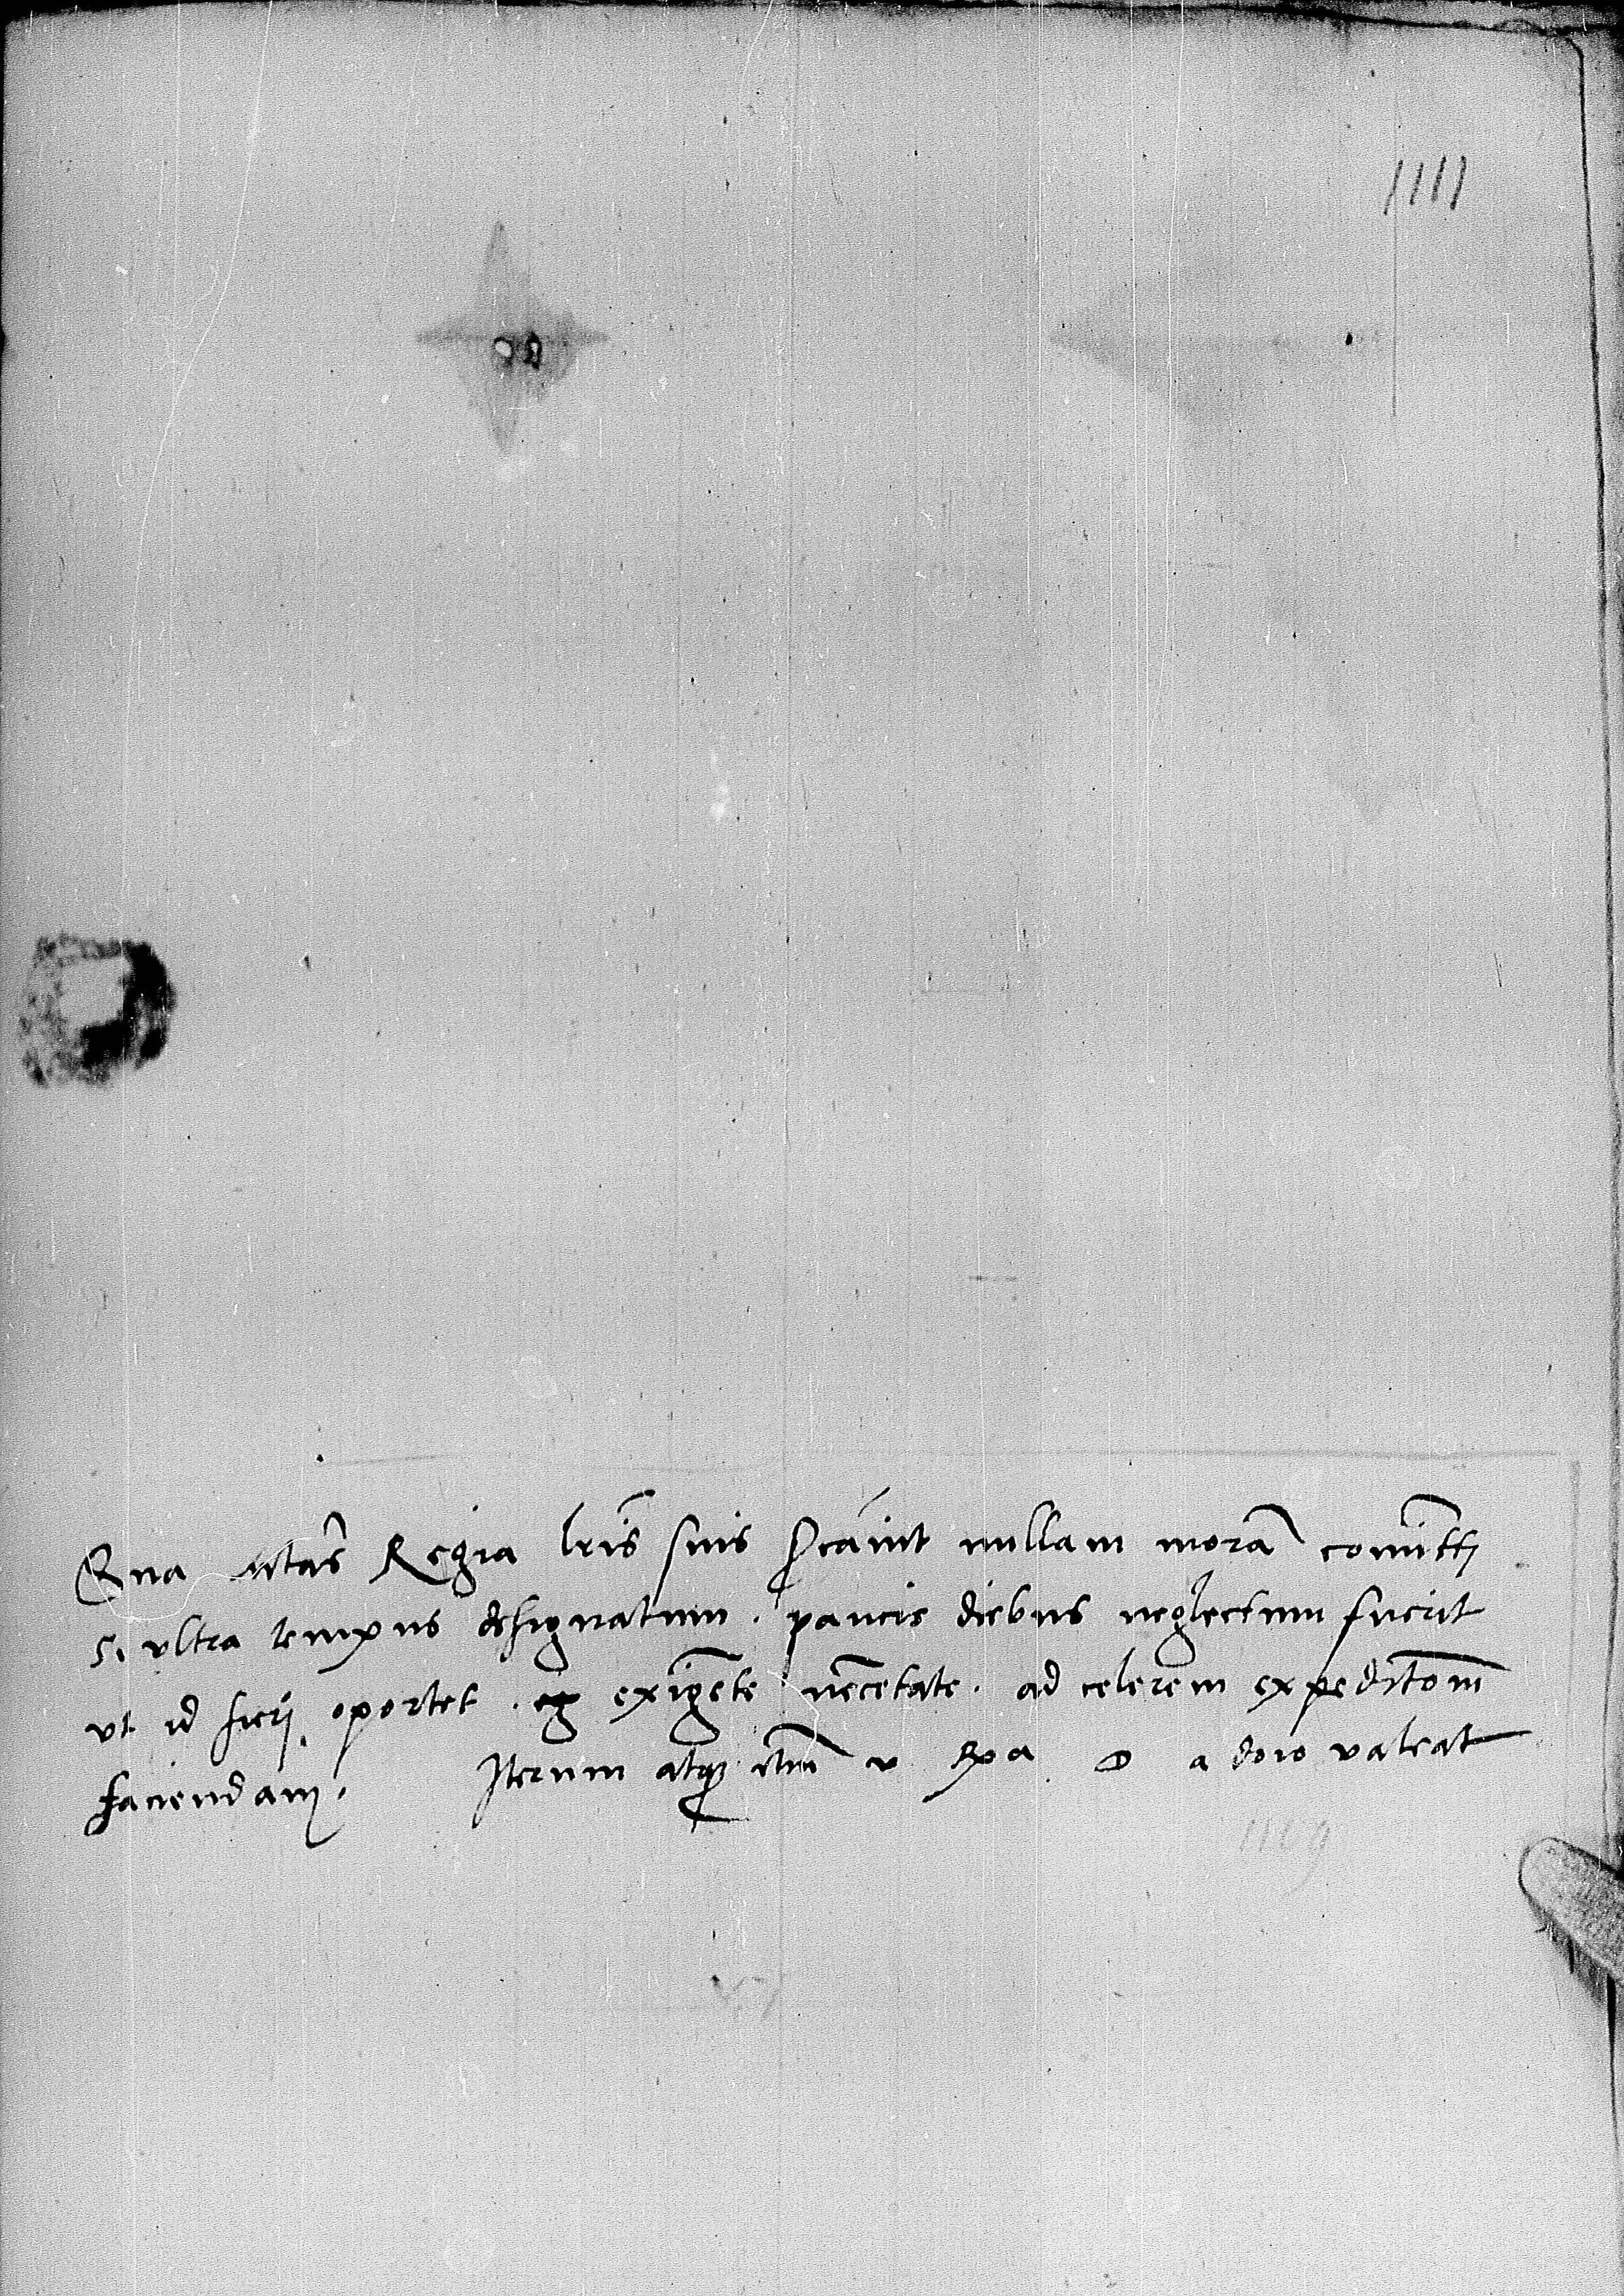 1111
Qua mtas Regia lris suis nullam mora comitti
si ultra tempus designatum . paucis diebus neglectum fuerit
ut id fieri oportet . exigete necetate . ad celerem expeditom
faciendam . Iterum atq itm v Rp a D a doio valeat